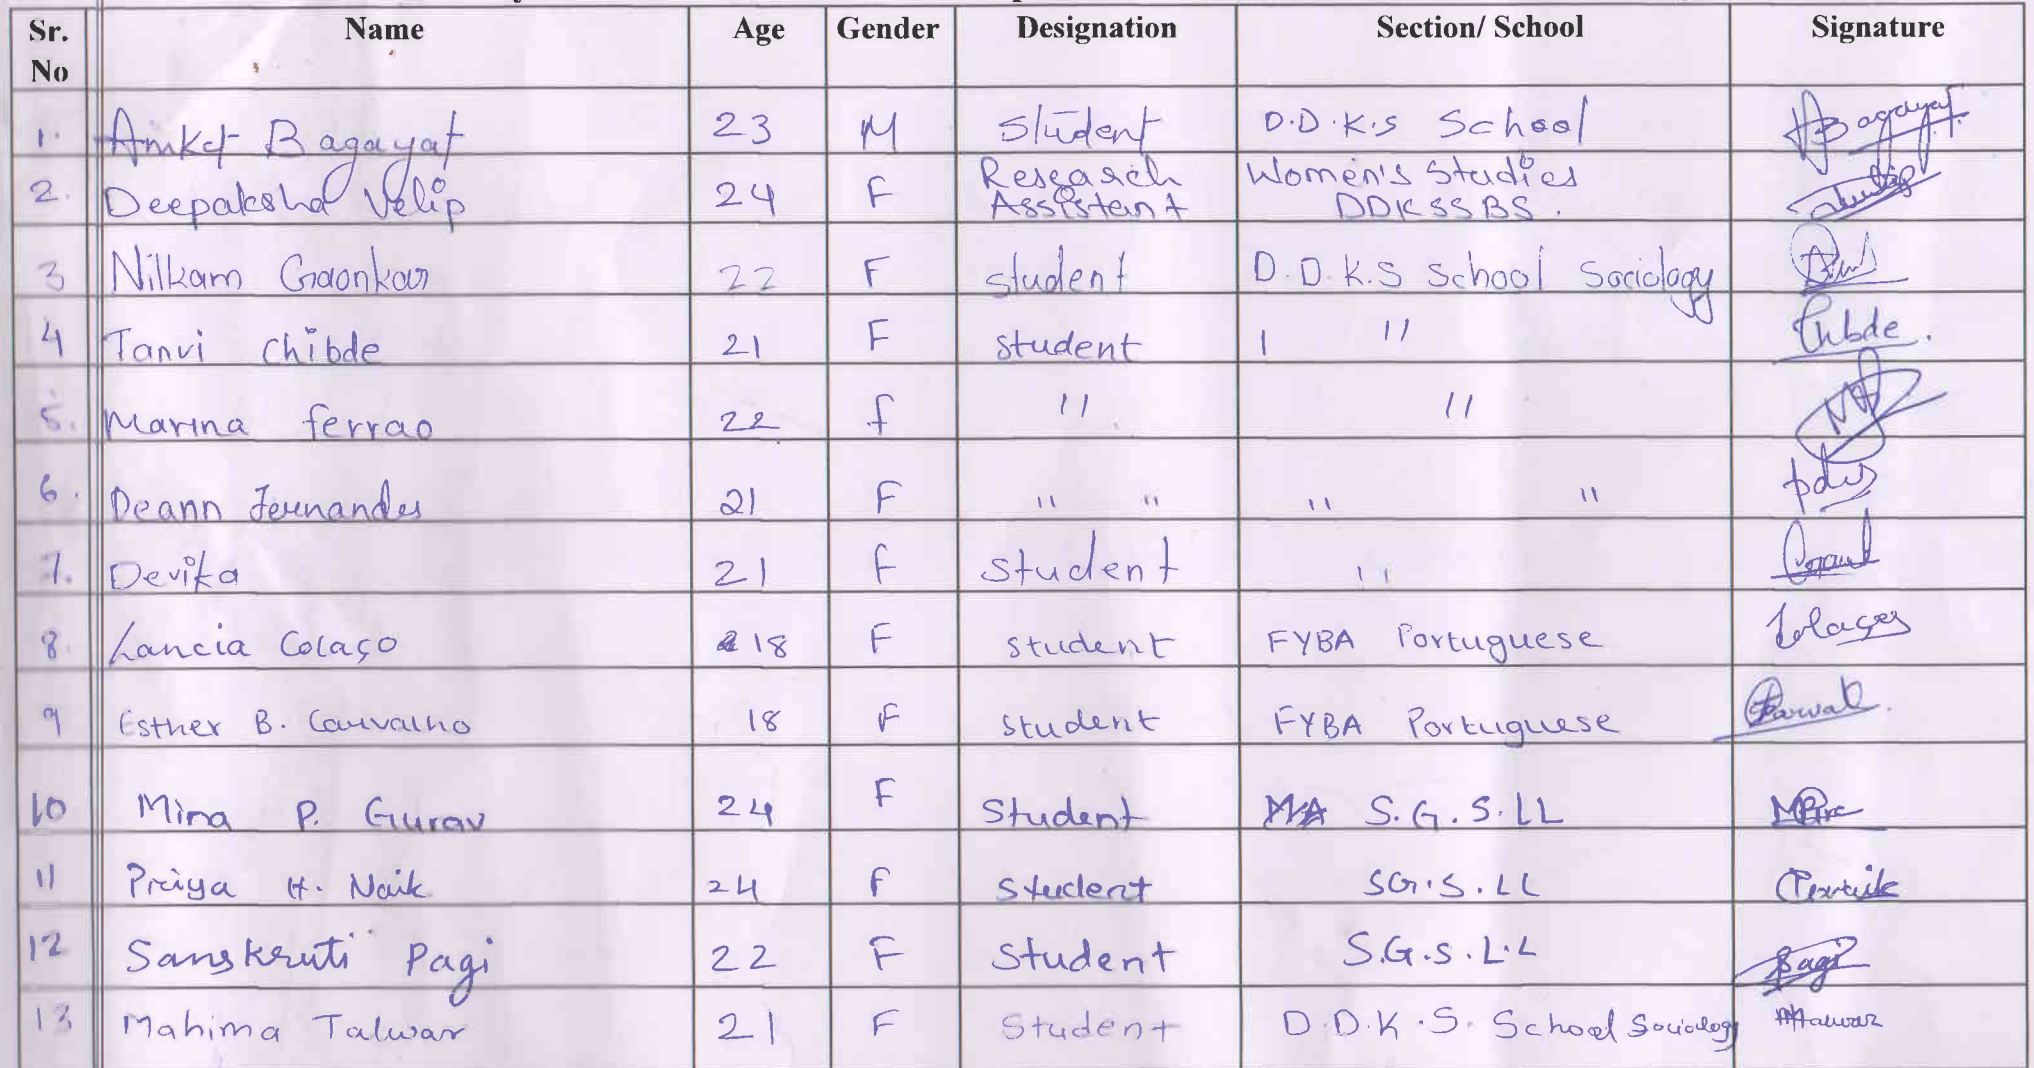 Sr. No Name Age Gender Designation Section/ School Signature
1. Aniket Bagayat 23 M Student D.D.K.S School Bagayat
2. Deepaksha Velip 24 F Research Assistant Women's Studies DDKSSBS.
3 Nilkam Gaonkar 22 F student D.D.K.S School Sociology
4 Tanvi Chibde 21 F student 1 " Chibde.
5. Marina ferrao 22 f " "
6. Deann Fernandes 21 F " " " "
7. Devika 21 F student "
8. Lancia Colaço 18 F student FYBA Portuguese Colaço
9 Esther B. Carvalho 18 F student FYBA Portuguese
10 Mina P. Gurav 24 F Student MA S.G.S.LL
11 Priya H. Naik 24 F Student SG.S.LL
12 Sanskruti Pagi 22 F Student S.G.S.L.L Pagi
13 Mahima Talwar 21 F Student D.D.K.S. School Sociology MTalwar